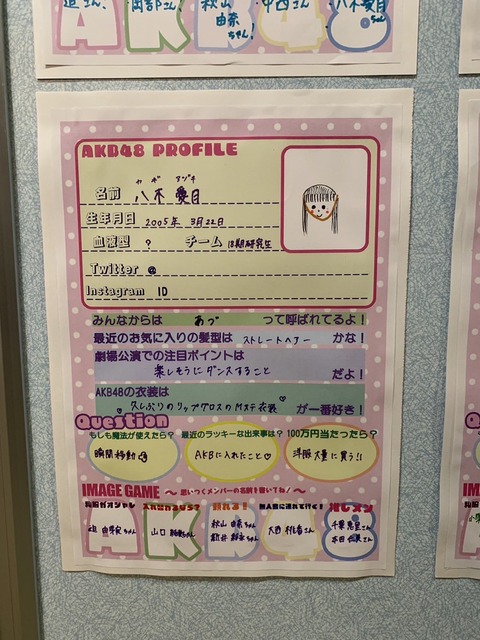 由奈
ちゃん
AKB48
AKB48 PROFILE
ヤギ アヅキ
名前 八木 愛月
生年月日 2005年 3月22日
血液型 ? チーム 18期研究生
Twitter @
Instagram ID
みんなからは あづ って呼ばれてるよ！
最近のお気に入りの髪型は ストレートヘアー かな！
劇場公演での注目ポイントは
楽しそうにダンスすること だよ！
AKB48の衣装は
久しぶりのリップグロスのMステ衣装 が一番好き！
Question
もしも魔法が使えたら？ 最近のラッキーな出来事は？ 100万円当たったら？
瞬間移動 AKBに入れたこと♡ 洋服大量に買う!!
IMAGE GAME 〜 思いつくメンバーの名前を書いてね！〜
私服がオシャレ 入れ替わるなら？ 頼れる！ 無人島に連れて行く！ 推しメン
迫 由芽実ちゃん 山口 結愛ちゃん 秋山 由奈ちゃん 大西 桃香さん 千葉 恵里さん
新井 彩永ちゃん 本田 仁美さん
AKB48